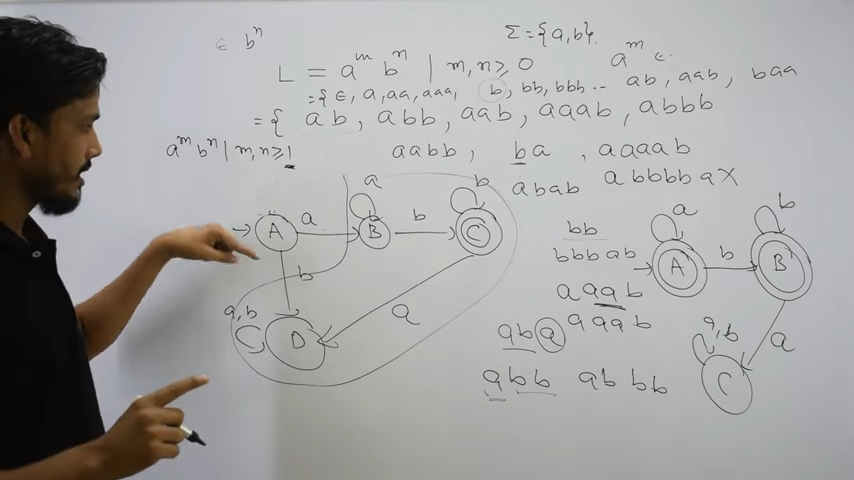 ϵ bⁿ
Σ = {a, b}.
L = aᵐ bⁿ | m, n ≥ 0 aᵐ ϵ.
= {ϵ, a, aa, aaa, b, bb, bbb ... ab, aab, baa
= { ab, abb, aab, aaab, abbb
aᵐ bⁿ | m, n ≥ 1 aabb, ba, aaaab
abab abbbbaX
a b a b
bb
A a B b C A b B
bbbab
aaab
b
a, b a aba aaab a, b a
D C
abb abbb